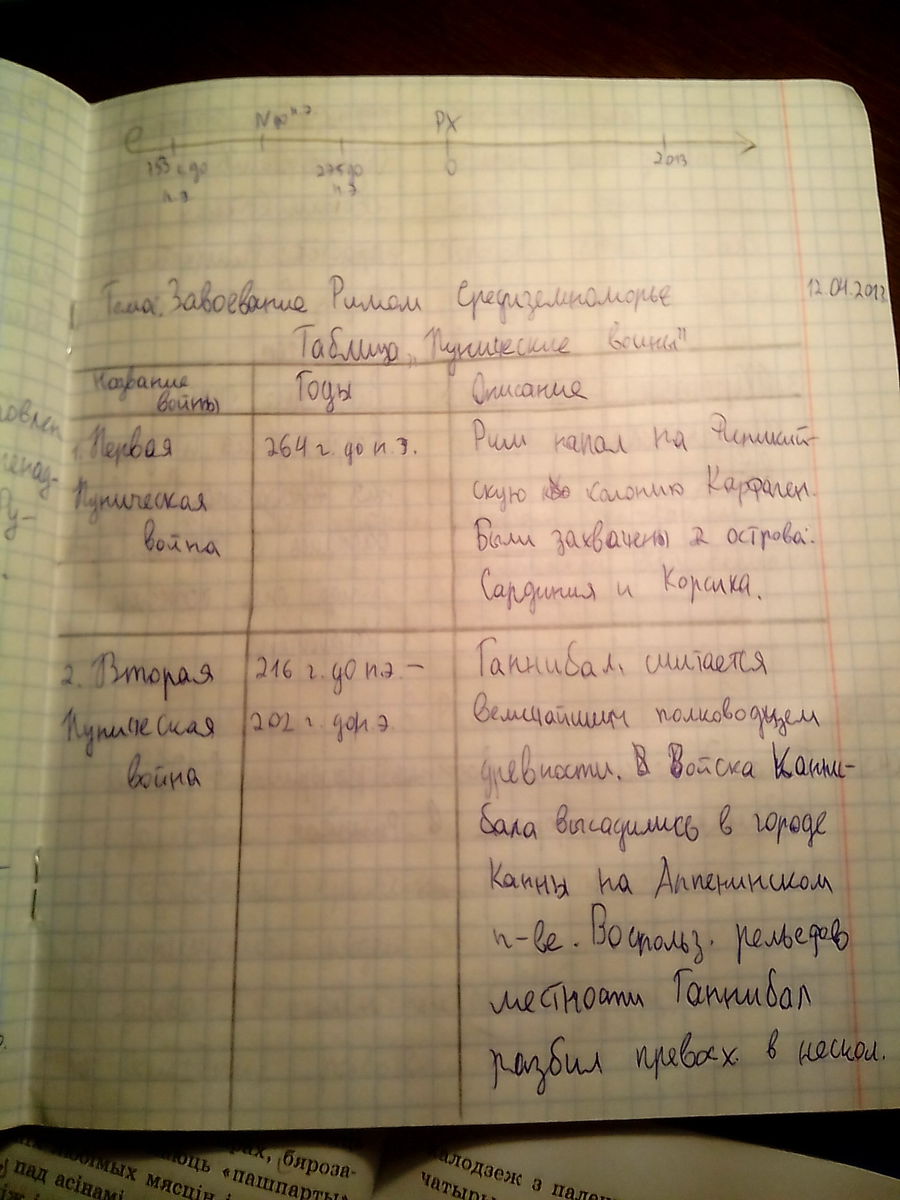 РХ
753 г. до
н.э
275 до
н.э
0
2013
12.04.2013
Тема: Завоевание Римом Средиземноморье
Таблица „Пунические войны"
Название
войны
Годы
Описание
1. Первая
Пуническая
война
264 г. до н.э.
Рим напал на Финикий-
скую колонию Карфаген.
Были захвачены 2 острова:
Сардиния и Корсика.
2. Вторая
Пуническая
война
216 г. до н.э –
202 г. до н.э.
Ганнибал считается
величайшим полководцем
древности. Войска Канни-
бала высадились в городе
Канны на Аппенинском
п-ве. Воспольз. рельефов
местности Ганнибал
разбил превосх. в нескол.
бяроза-
«пашпарты»
пад асінамі
любімых мясцін
алодзеж з пален
чатыры